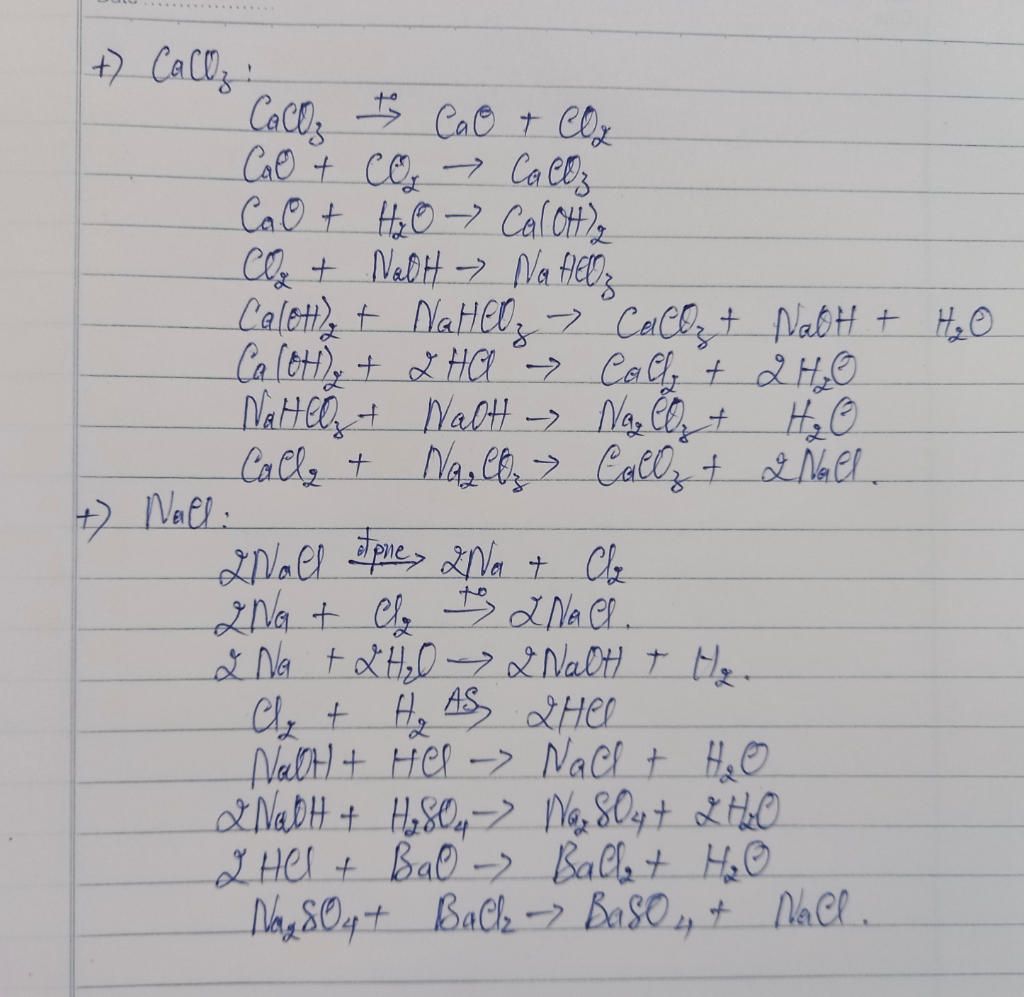 Date
+) CaCO₃ :
CaCO₃ →(t°) CaO + CO₂
CaO + CO₂ → CaCO₃
CaO + H₂O → Ca(OH)₂
CO₂ + NaOH → NaHCO₃
Ca(OH)₂ + NaHCO₃ → CaCO₃ + NaOH + H₂O
Ca(OH)₂ + 2HCl → CaCl₂ + 2H₂O
NaHCO₃ + NaOH → Na₂CO₃ + H₂O
CaCl₂ + Na₂CO₃ → CaCO₃ + 2NaCl.
+) NaCl :
2NaCl →(đpnc) 2Na + Cl₂
2Na + Cl₂ →(t°) 2NaCl.
2Na + 2H₂O → 2NaOH + H₂.
Cl₂ + H₂ →(AS) 2HCl
NaOH + HCl → NaCl + H₂O
2NaOH + H₂SO₄ → Na₂SO₄ + 2H₂O
2HCl + BaO → BaCl₂ + H₂O
Na₂SO₄ + BaCl₂ → BaSO₄ + NaCl.